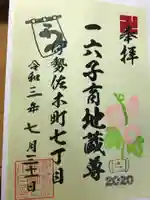 奉拝
一六子育地蔵尊
伊勢佐木町七丁目
令和三年 七月三十一日
2020